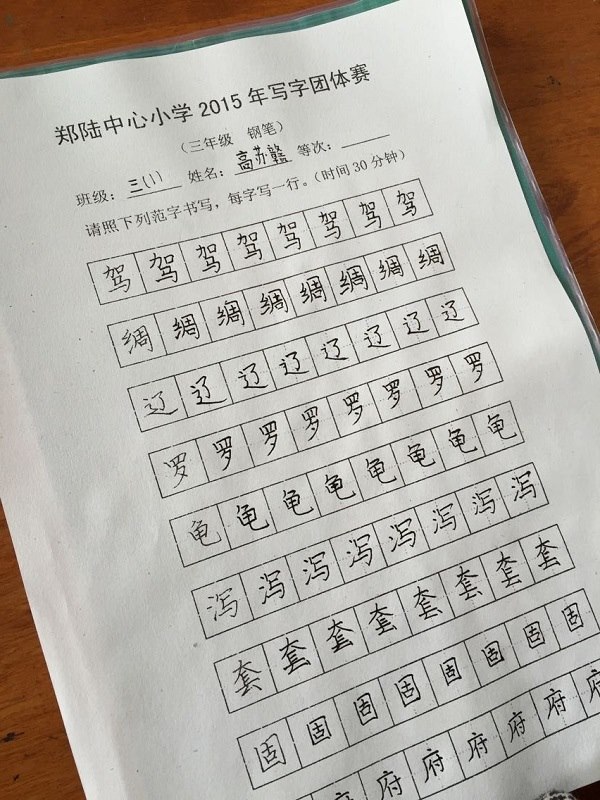 郑陆中心小学2015年写字团体赛
（三年级 钢笔）
班级：三（1） 姓名：高苏赣 等次：
请照下列范字书写，每字写一行。（时间30分钟）
驾驾驾驾驾驾驾驾
绸绸绸绸绸绸绸绸
辽辽辽辽辽辽辽辽
罗罗罗罗罗罗罗罗
龟龟龟龟龟龟龟龟
泻泻泻泻泻泻泻泻
套套套套套套套套
固固固固固固固固
府府府府府府